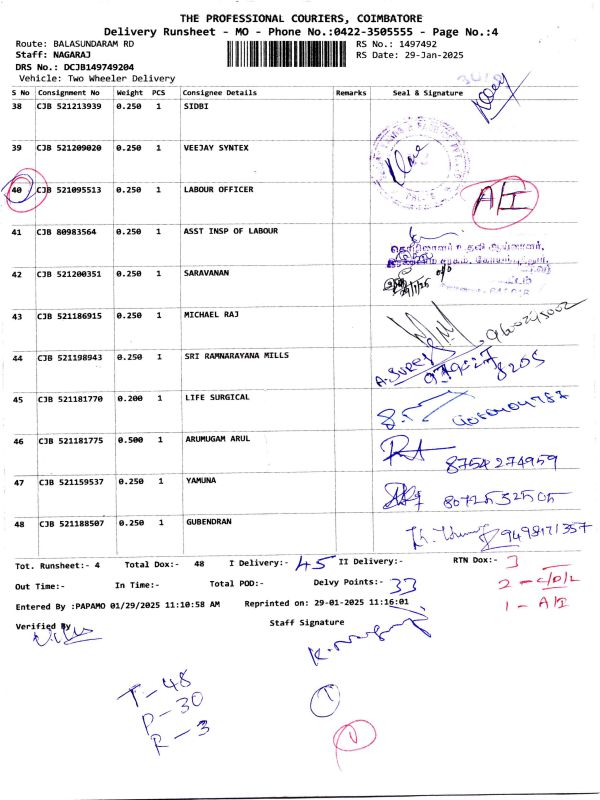 THE PROFESSIONAL COURIERS, COIMBATORE
Delivery Runsheet - MO - Phone No.:0422-3505555 - Page No.:4
Route: BALASUNDARAM RD
RS No.: 1497492
Staff: NAGARAJ
RS Date: 29-Jan-2025
DRS No.: DCJB149749204
Vehicle: Two Wheeler Delivery
S No Consignment No Weight PCS Consignee Details Remarks Seal & Signature
38 CJB 521213939 0.250 1 SIDBI
39 CJB 521209020 0.250 1 VEEJAY SYNTEX
40 CJB 521095513 0.250 1 LABOUR OFFICER A/I
41 CJB 80983564 0.250 1 ASST INSP OF LABOUR
42 CJB 521200351 0.250 1 SARAVANAN
43 CJB 521186915 0.250 1 MICHAEL RAJ
44 CJB 521198943 0.250 1 SRI RAMNARAYANA MILLS
45 CJB 521181770 0.200 1 LIFE SURGICAL
46 CJB 521181775 0.500 1 ARUMUGAM ARUL 8754274959
47 CJB 521159537 0.250 1 YAMUNA 8072532505
48 CJB 521188507 0.250 1 GUBENDRAN 9498171357
Tot. Runsheet:- 4 Total Dox:- 48 I Delivery:- 45 II Delivery:- RTN Dox:- 3
Out Time:- In Time:- Total POD:- Delvy Points:- 33
2 - C/D/L
1 - A/I
Entered By :PAPAMO 01/29/2025 11:10:58 AM Reprinted on: 29-01-2025 11:16:01
Verified By
Staff Signature
T - 48
P - 30
R - 3